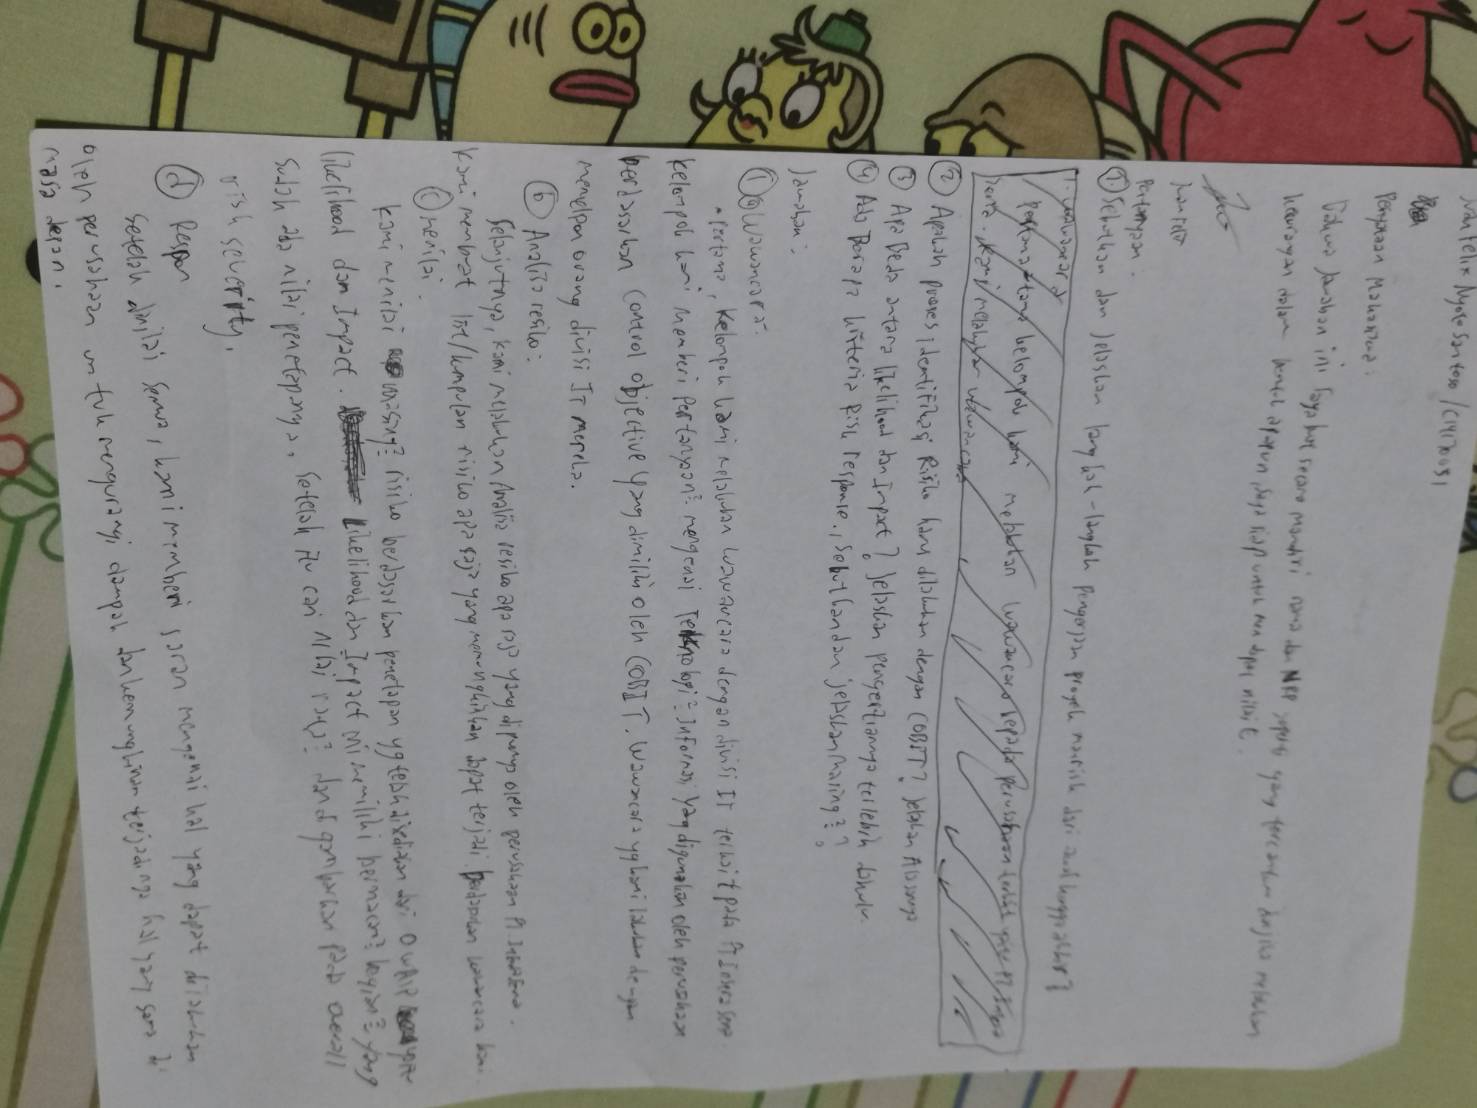 Ivan Felix Nyoto Santoso / C14170051
Pernyataan Mahasiswa:
Bahwa jawaban ini saya buat secara mandiri nama dan NRP seperti yang tercantum dan jika melakukan
kecurangan dalam bentuk apapun saya siap untuk mendapat nilai E.
Pertanyaan:
① Sebutkan dan jelaskan langkah-langkah pengerjaan proyek manrisk dari awal hingga akhir?
② Apakah proses identifikasi Risiko harus dilakukan dengan COBIT? jelaskan Alasannya
③ Apa Beda antara likelihood dan Impact? jelaskan pengertiannya terlebih dahulu
④ Ada Berapa kriteria risk response, sebutkan dan jelaskan masing²?
Jawaban:
① ⓐ Wawancara:
Pertama, kelompok kami melakukan wawancara dengan divisi IT terkait pada PT
kelompok kami memberi pertanyaan² mengenai Teknologi² Informasi yang digunakan oleh perusahaan
berdasarkan control objective yang dimiliki oleh COBIT. Wawancara yg kami lakukan dengan
menelpon orang divisi IT mereka.
ⓑ Analisa resiko:
Selanjutnya, kami melakukan Analisa resiko apa saja yang dipunya oleh perusahaan PT
kami membuat list/kumpulan risiko apa saja yang memungkinkan dapat terjadi berdasarkan wawancara kami.
ⓒ menilai:
kami menilai masing² risiko berdasarkan penetapan yg telah disediakan dari OWASP yaitu
likelihood dan Impact. Likelihood dan Impact ini memiliki bermacam² bagian² yang
sudah ada nilai penetapannya, setelah itu cari nilai rata² dan gambarkan pada overall
risk severity.
ⓓ Respon
setelah dinilai semua, kami memberi saran mengenai hal yang dapat dilakukan
oleh perusahaan untuk mengurangi dampak dan kemungkinan terjadinya hal yang sama di
masa depan.